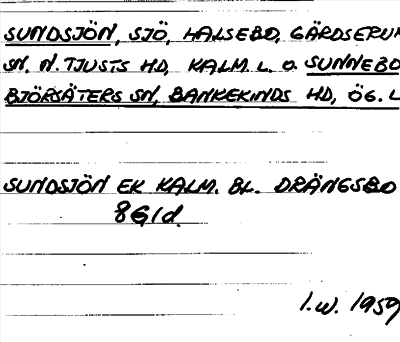 SUNDSJÖN, SJÖ, HALSEBO, GÄRDSERUM
SN. N. TJUSTS HD, KALM. L. O. SUNNEBO
BJÖRSÄTERS SN, BANKEKINDS HD, ÖG. L
SUNDSJÖN EK KALM. BL. DRÄNGSBO
8G1d.
I.W. 1959